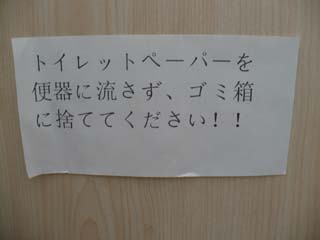 トイレットペーパーを
便器に流さず、ゴミ箱
に捨ててください！！